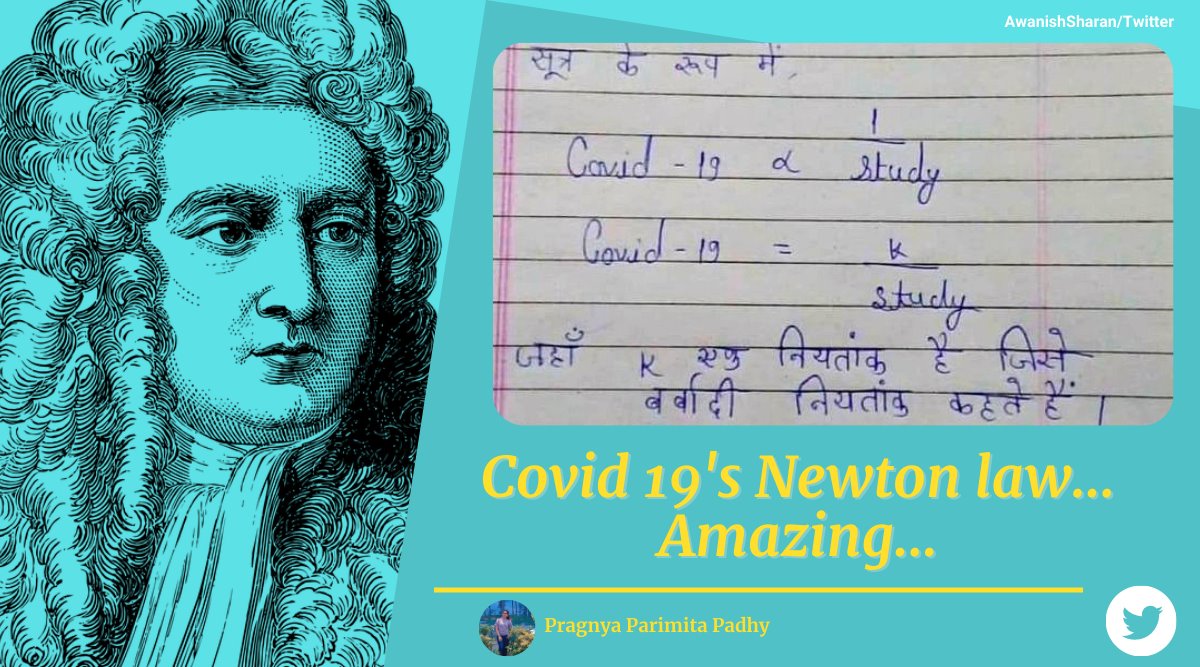 AwanishSharan/Twitter
सूत्र के रूप में,
1
Covid - 19 ∝ study
Covid - 19 = K
study
जहाँ K एक नियतांक है जिसे
बर्बादी नियतांक कहते हैं ।
Covid 19's Newton law...
Amazing...
Pragnya Parimita Padhy